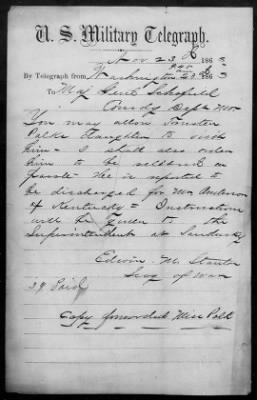 U. S. Military Telegraph.
Nov 23 186
By Telegraph from Washington 186 3
To Maj Genl Schofield
Comdg Dept Mo
You may allow Trusten
Polk's daughter to visit
him - I shall also order
him to be released on
parole - He is reported to
be discharged for Mr Anderson
of Kentucky - Instructions
will be given to the
Superintendent at Sandusky
Edwin M. Stanton
Secy of War
39 Paid
Copy forwarded Miss Polk